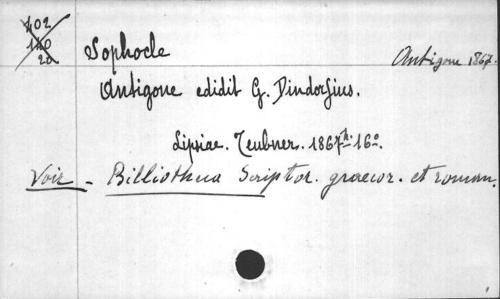 402
140
20
Sophocle
Antigone 1867.
Antigone edidit G. Dindorfius.
Lipsiae. Teubner. 1867. 16º.
Voir - Bibliotheca Scriptor. graecor. et roman.